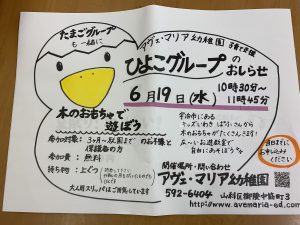 たまごグループ
も一緒に
アヴェ・マリア幼稚園 子育て支援
ひよこグループのおしらせ
6月19日(水)
10時30分〜
11時45分
木のおもちゃで
遊ぼう
参加対象: 3ヶ月〜就園までのお子様と
保護者の方
参加費: 無料
持ち物: 上ぐつ
大人用スリッパはご用意しています
宇治市にある
キッズいわき ぱふさんから
木のおもちゃがたくさん
自由にあそぼう
前日までに
お申し込み
ください
開催場所・問い合わせ
アヴェ・マリア幼稚園
592-6404 山科区御陵中筋町3
http://www.avemaria-ed.